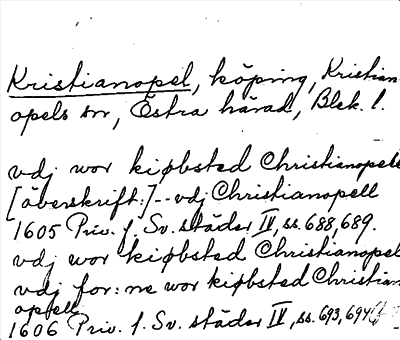 Kristianopel, köping, Kristian-
opels sn, Östra härad, Blek. l.
vdj wor kiøbsted Christianopels
[överskrift:]--vdj Christianopell
1605 Priv. f. Sv. städer IV, ss. 688, 689.
vdj wor kiøbsted Christianopel
vdj for:ne wor kiøbsted Christian
opell
1606 Priv. f. Sv. städer IV, ss. 693, 694